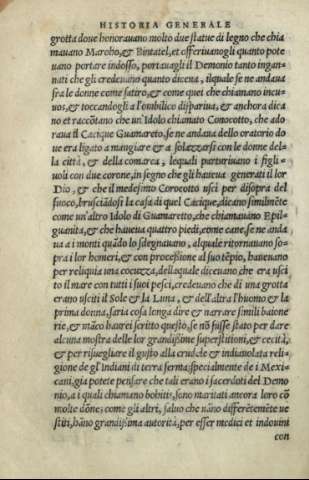 HISTORIA GENERALE
grotta doue honorauano molto due statue di legno che chia
mauano Marobo, & Bintatel, et offeriuanogli quanto pote
uano portare indosso, portauagli il Demonio tanto ingan-
nati che gli credeuano quanto diceua, ilquale se ne andaua
fra le donne come satiro, & come quei che chiamano incu-
uos, & toccandogli a l'ombilico dispariua, & anchora dica
no et raccōtano che un'Idolo chiamato Conocotto, che ado
raua il Cacique Guamareto, se ne andaua dello oratorio do
ue era ligato a mangiare & a solazzarsi con le donne del-
la città, & della comarca, lequali parturiuano i figli-
uoli con due corone, in segno che gli haueua generati il lor
Dio, & che il medesimo Corocotto uscì per disopra del
fuoco, brusciādosi la casa di quel Cacique, dicano similmēte
come un'altro Idolo di Guamaretto, che chiamauano Epil-
guanita, & che haueua quattro piedi, come cane, se ne anda
ua a i monti quādo lo sdegnauano, alquale ritornauano so-
pra i lor homeri, & con processione al suo tēpio, haueuano
per reliquia una cocuzza, dellaquale diceuano che era usci
to il mare con tutti i suoi pesci, credeuano che di una grotta
erano usciti il Sole & la Luna, & dell'altra l'huomo & la
prima donna, saria cosa lenga dire & narrare simili baione
rie, & māco haurei scritto questo, se nō fusse stato per dare
alcuna mostra delle lor grandissime superstitioni, & cecità,
& per risuegliare il gusto alla crudele & indiauolata reli-
gione de gl'Indiani di terra ferma, specialmente de i Mexi-
cani, gia potete pensare che tali erano i sacerdoti del Demo
nio, a i quali chiamano bohiti, sono maritati ancora loro cō
molte dōne, come gli altri, saluo che uāno differētemēte ue
stiti, hāno grandissima autorità, per esser medici et indouini
con